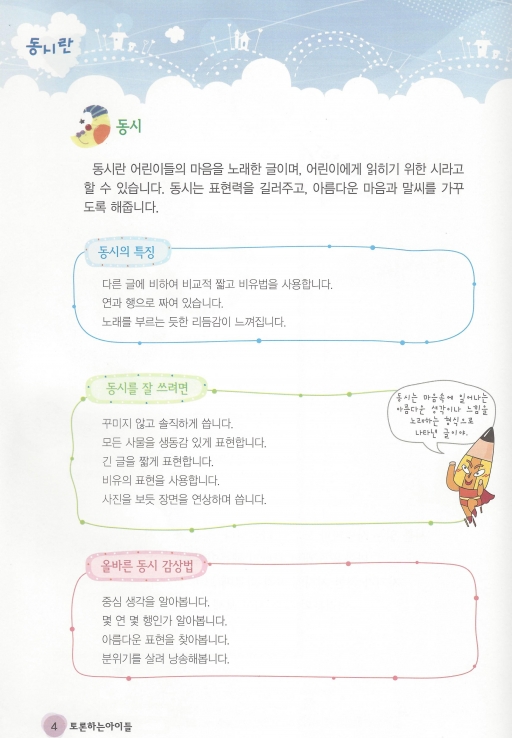 동시란
동시
동시란 어린이들의 마음을 노래한 글이며, 어린이에게 읽히기 위한 시라고
할 수 있습니다. 동시는 표현력을 길러주고, 아름다운 마음과 말씨를 가꾸
도록 해줍니다.
동시의 특징
다른 글에 비하여 비교적 짧고 비유법을 사용합니다.
연과 행으로 짜여 있습니다.
노래를 부르는 듯한 리듬감이 느껴집니다.
동시를 잘 쓰려면
꾸미지 않고 솔직하게 씁니다.
모든 사물을 생동감 있게 표현합니다.
긴 글을 짧게 표현합니다.
비유의 표현을 사용합니다.
사진을 보듯 장면을 연상하며 씁니다.
동시는 마음속에 일어나는
아름다운 생각이나 느낌을
노래하는 형식으로
나타낸 글이야.
올바른 동시 감상법
중심 생각을 알아봅니다.
몇 연 몇 행인가 알아봅니다.
아름다운 표현을 찾아봅니다.
분위기를 살려 낭송해봅니다.
4 토론하는아이들